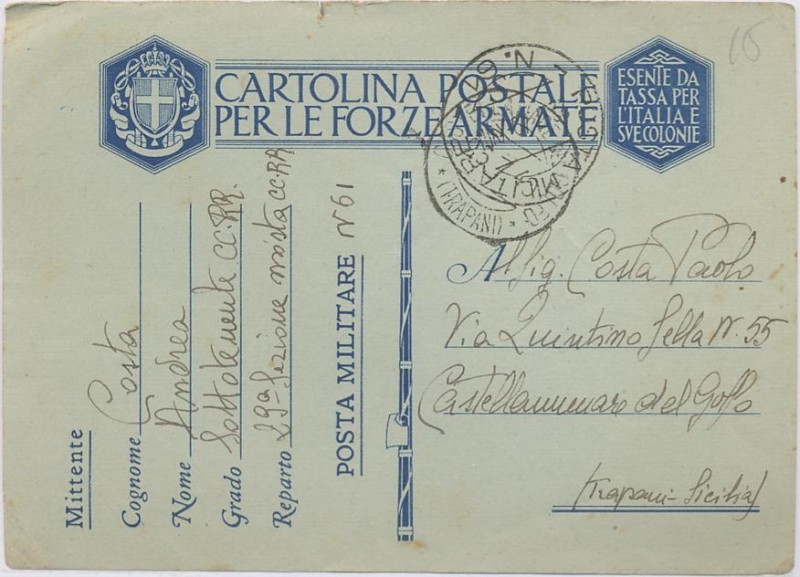 CARTOLINA POSTALE
PER LE FORZE ARMATE
ESENTE DA
TASSA PER
L'ITALIA E
SVE COLONIE
POSTA MILITARE N.
* (TRAPANI) *
Mittente
Cognome Costa
Nome Andrea
Grado Sottotenente CC.RR.
Reparto 29ª Sezione mista CC.RR
POSTA MILITARE N° 61
Al Sig. Costa Paolo
Via Quintino Sella N. 55
Castellammare del Golfo
(Trapani - Sicilia)